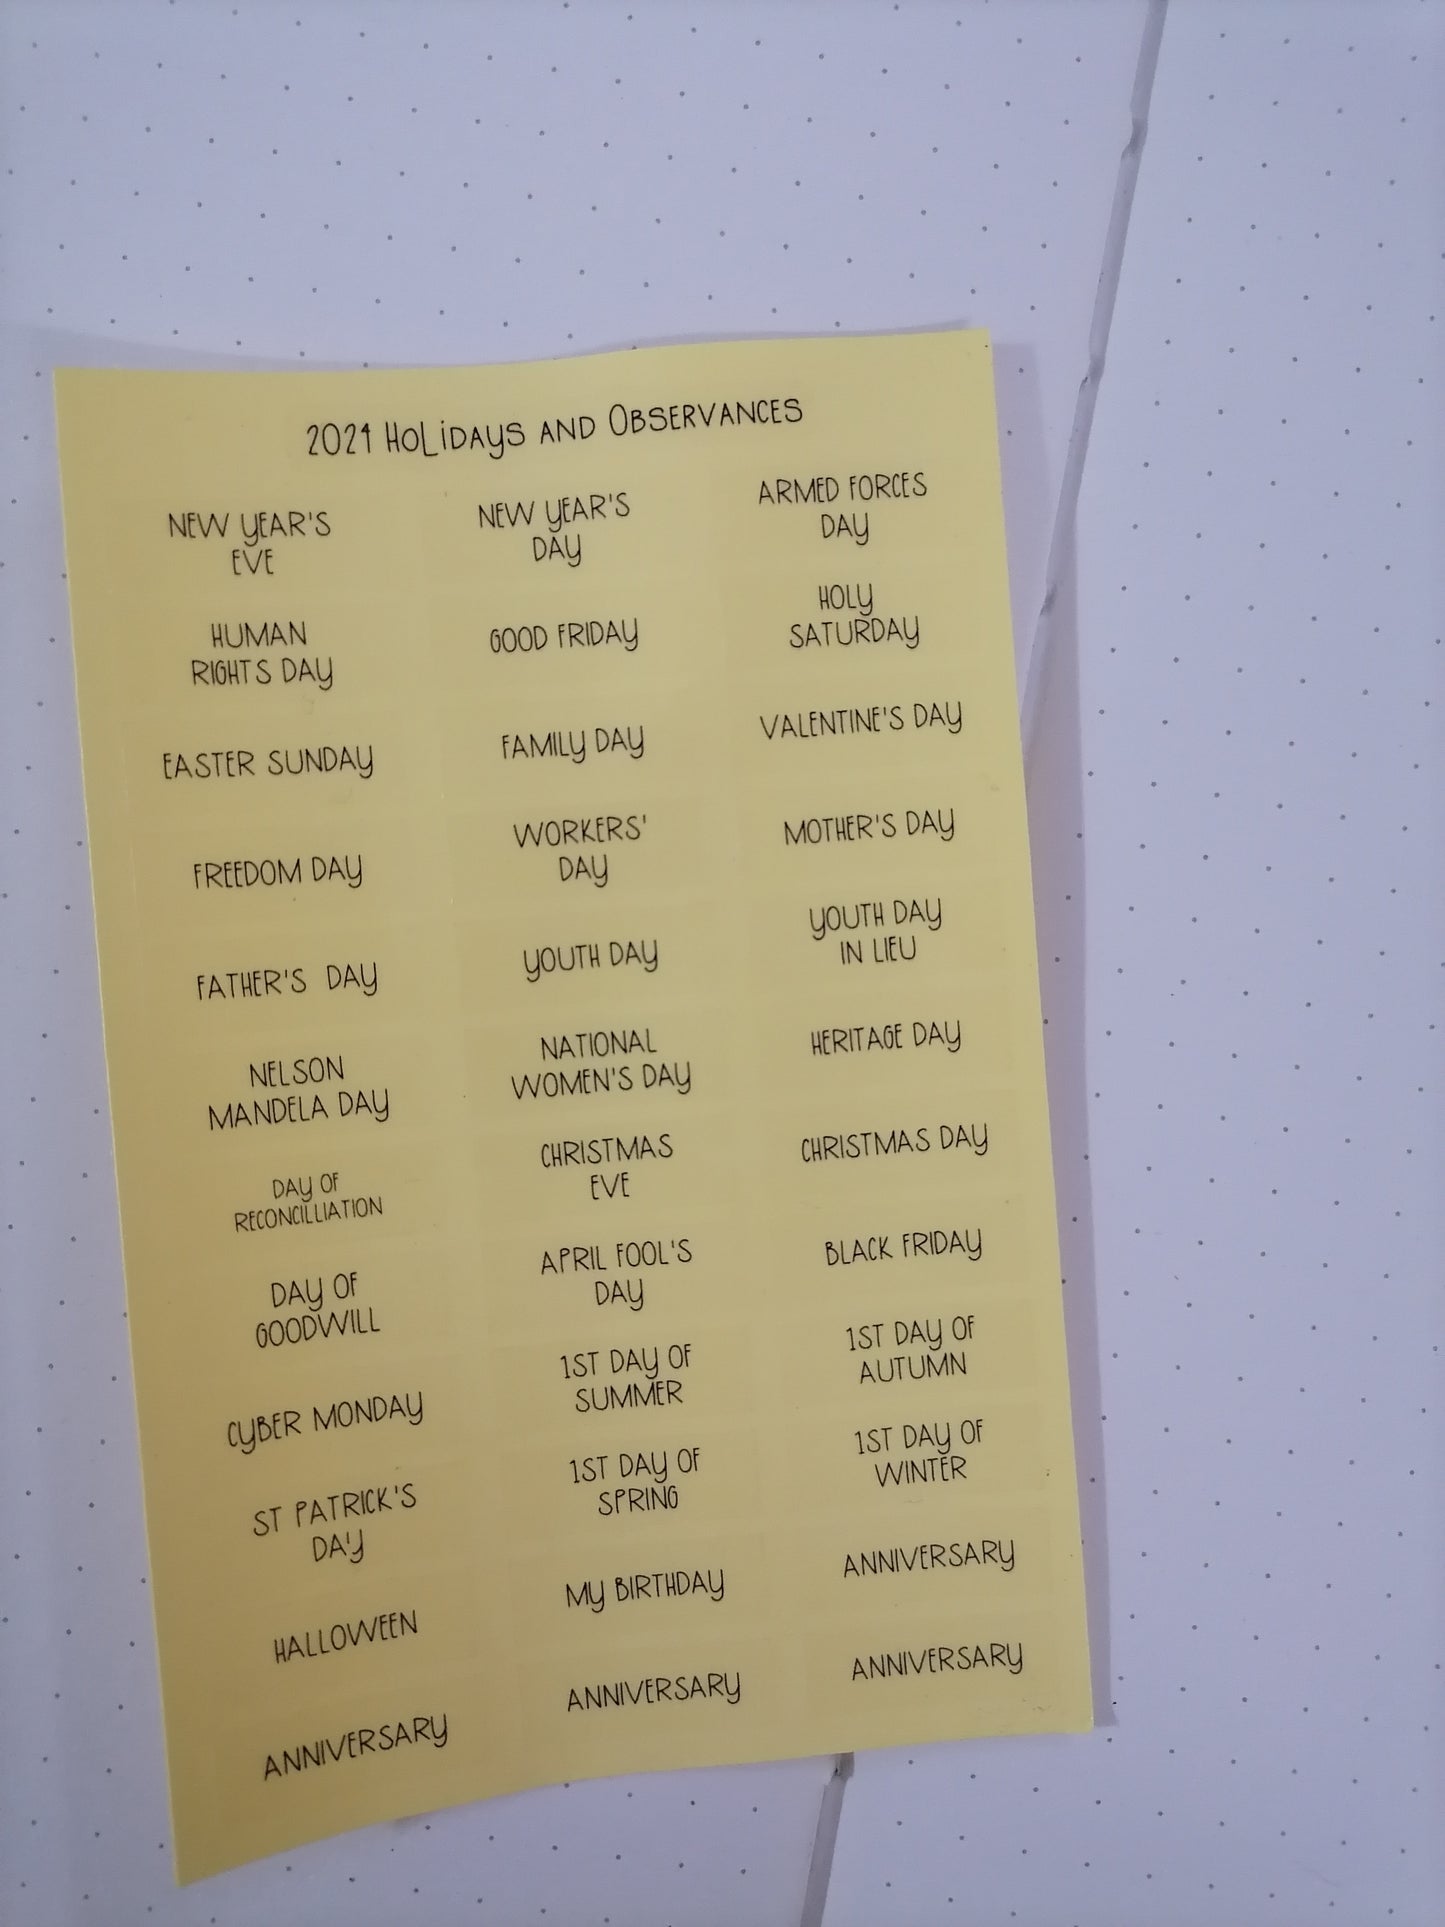 2021 Holidays and Observances
NEW YEAR'S
EVE
NEW YEAR'S
DAY
ARMED FORCES
DAY
HUMAN
RIGHTS DAY
GOOD FRIDAY
HOLY
SATURDAY
EASTER SUNDAY
FAMILY DAY
VALENTINE'S DAY
FREEDOM DAY
WORKERS'
DAY
MOTHER'S DAY
FATHER'S DAY
YOUTH DAY
YOUTH DAY
IN LIEU
NELSON
MANDELA DAY
NATIONAL
WOMEN'S DAY
HERITAGE DAY
DAY OF
RECONCILLIATION
CHRISTMAS
EVE
CHRISTMAS DAY
DAY OF
GOODWILL
APRIL FOOL'S
DAY
BLACK FRIDAY
CYBER MONDAY
1ST DAY OF
SUMMER
1ST DAY OF
AUTUMN
ST PATRICK'S
DA'Y
1ST DAY OF
SPRING
1ST DAY OF
WINTER
HALLOWEEN
MY BIRTHDAY
ANNIVERSARY
ANNIVERSARY
ANNIVERSARY
ANNIVERSARY